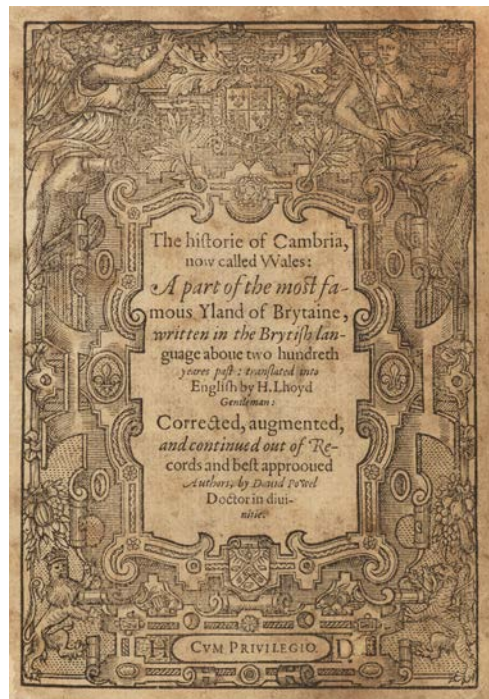 The hiſtorie of Cambria,
now called VVales:
A part of the moſt fa-
mous Yland of Brytaine,
written in the Brytiſh lan-
guage aboue two hundreth
yeares paſt: tranſlated into
Engliſh by H. Lhoyd
Gentleman:
Corrected, augmented,
and continued out of Re-
cords and beſt approoued
Authors, by Dauid Powel
Doctor in diui-
nitie.
H CVM PRIVILEGIO. D